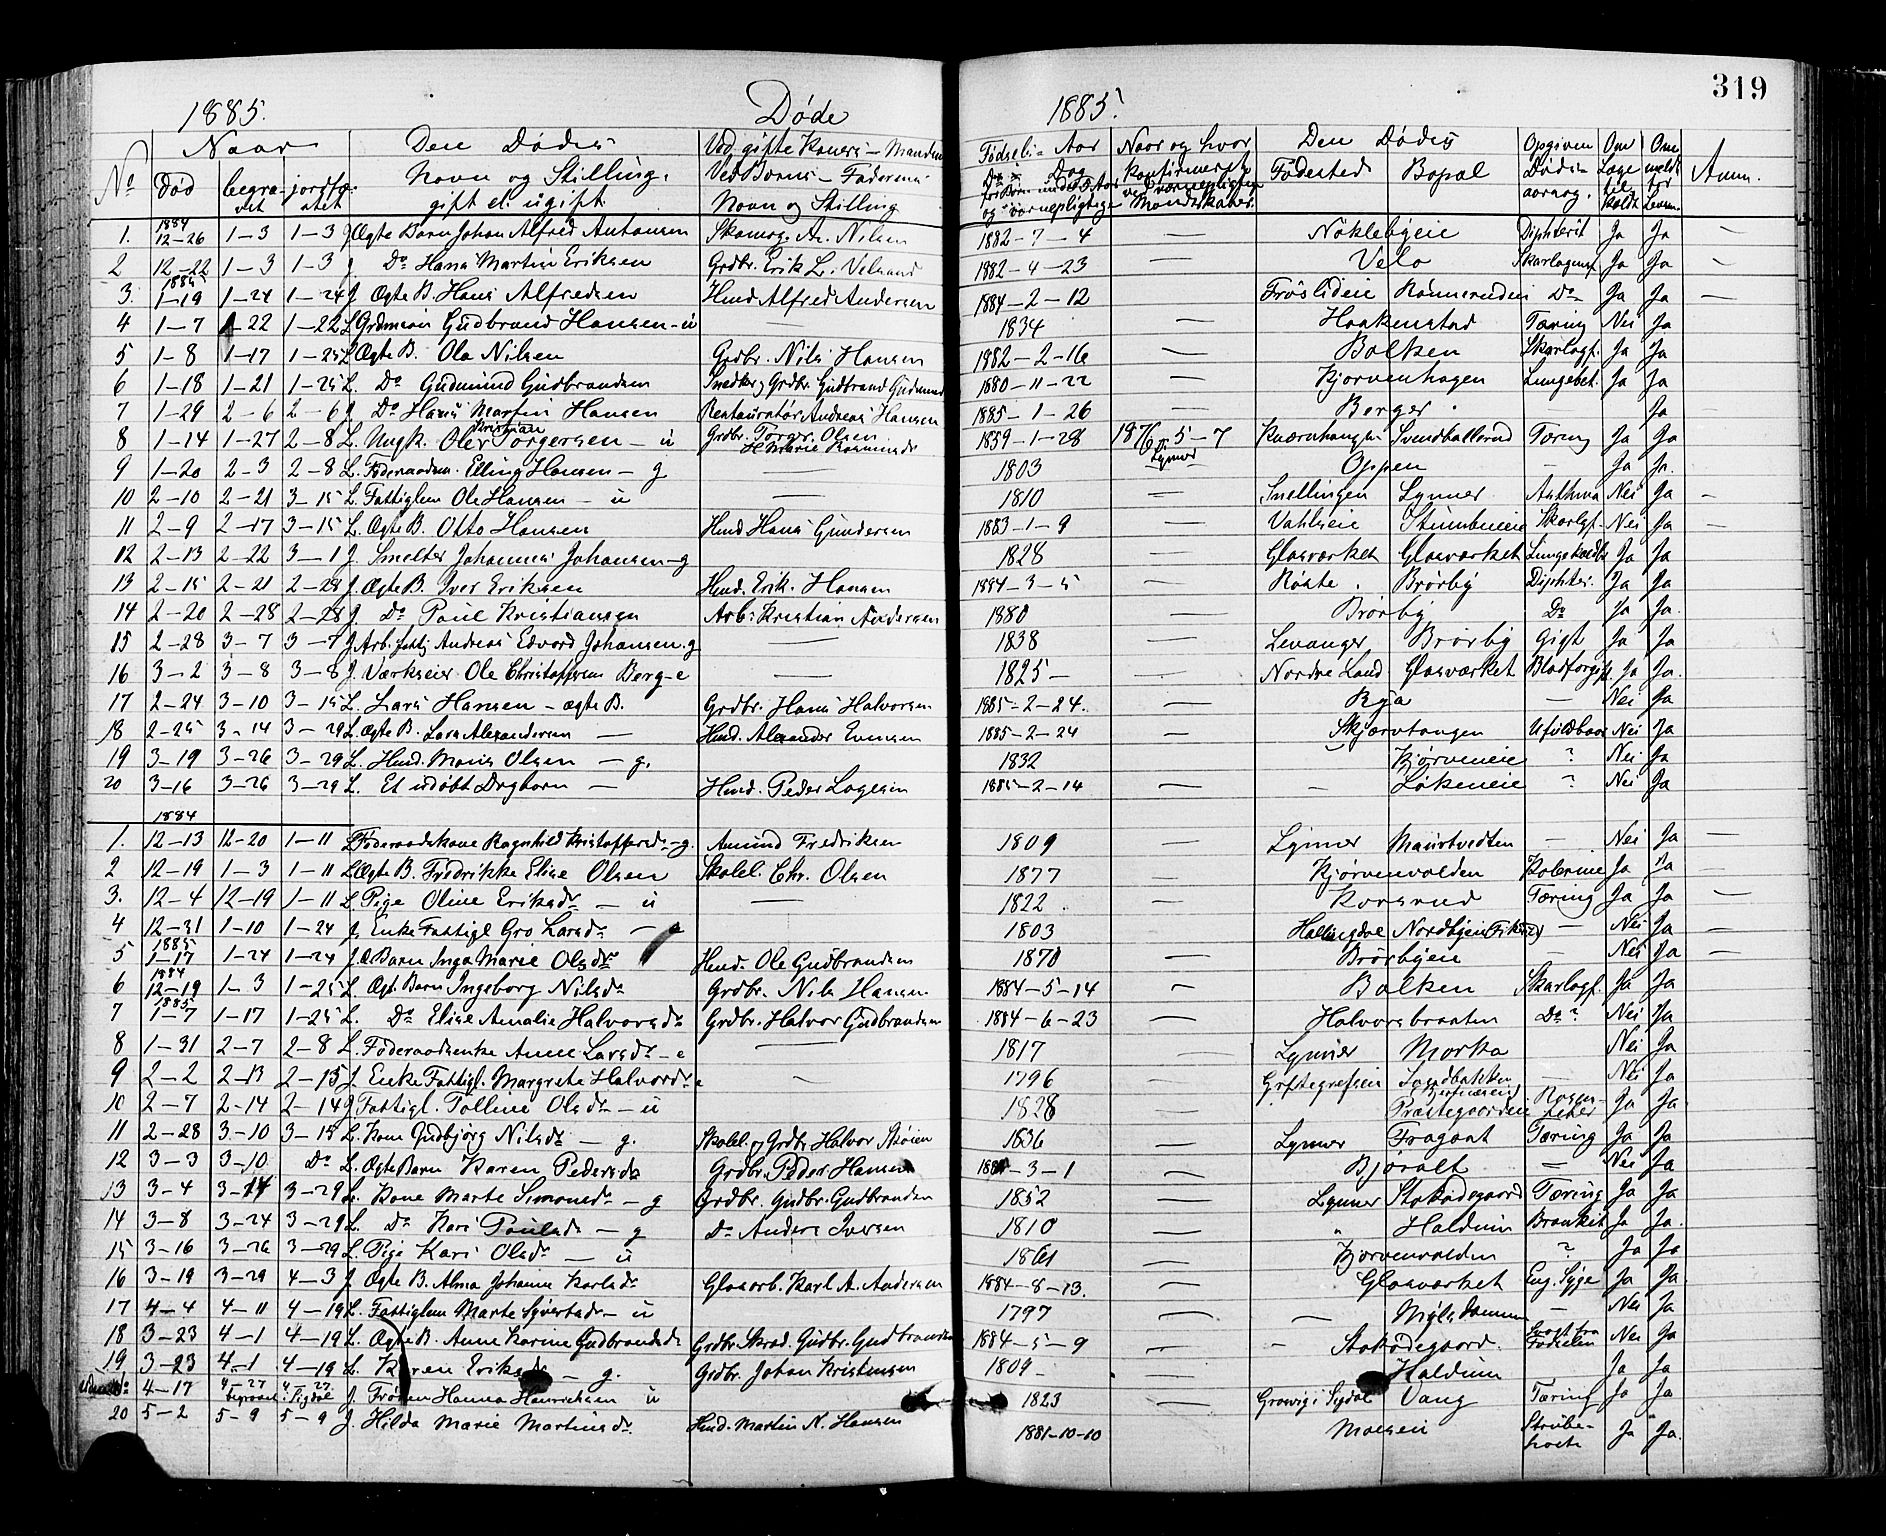 319
1885. Døde 1885.
No Naar Den Dødes Ved gifte Koners - Mandens Fødsels- Aar Naar og hvor Den Dødes Opgiven Om Om Anm.
død begravet jordfæstet Navn og Stilling. Ved Børns - Faderens Dag konfirmeret Fødested Bopæl Døds- Læge meldt
gift el. ugift Navn og Stilling og værnepligtige Mandskaber. aarsag. til for
1. 1884 12-26 1-3 1-3 J Ægte Barn Johan Alfred Antonsen An. Nilsen 1882-7-4 — Nøklebyeie Diphterit Ja Ja —
2 12-22 1-3 1-3 J. Do Hans Martin Eriksen Grdbr. Erik L. 1882-4-23 — Velo Ja Ja —
3. 1885 1-19 1-24 1-24 J Ægte B. Hans Alfredsen Husmd Alfred Andersen 1884-2-12 Do Ja Ja —
4 1-7 1-22 1-22 L Gudbrand Hansen - u — 1834 — Haakenstad Tæring Nei Ja
5 1-8 1-17 1-25 L Ægte B. Ole Nilsen Grdbr. Nils Hansen 1882-2-16 — Balken Skarlagf. Ja Ja
6 1-18 1-21 1-25 L. Do Gudmund Gudbrandsen Snedker, Grdbr. Gudbrand 1880-11-22 — Kjørvenhagen Lungebet. Ja Ja
7 1-29 2-6 2-6 J. Do Hans Martin Hansen Restauratør Andreas Hansen 1885-1-26 — Berger Ja
8 1-14 1-27 2-8 L. Ungk. Ole Kristian Torgersen - u Grdbr. Torger Olsen 1859-1-28 1876-5-7 Lynner Svendballerud Tæring Ja Ja
9 1-20 2-3 2-8 L. Elling Hansen - g — 1803 — Oppen — Ja Ja
10 2-10 2-21 3-15 L Fattiglem Ole Hansen - u — 1810 — Snellingen Lynner Asthma Nei Ja —
11 2-9 2-17 3-15 L. Ægte B. Otto Hansen Husmd Hans Gundersen 1883-1-9 — Skarlgf. Nei Ja —
12 2-13 2-22 3-1 J. Smelter Johannes Johansen - g 1828 — Glasværket Glasværket Ja Ja
13 2-15 2-21 2-28 J. Ægte B. Iver Eriksen Husmd. Erik. Hansen 1884-3-5 — Røste. Brørby Diphter. Ja Ja
14 2-20 2-28 2-28 J Do Paul Kristiansen Arb. Kristian Andersen 1880 — Brørby Do Ja Ja.
15 2-28 3-7 3-7 J Arb. Andreas Edvard Johansen. g — 1838 — Levanger Brørby Gigt Ja Ja
16 3-2 3-8 3-8 J. Værkseier Ole Christoffersen Berg - e — 1825 — Nordre Land Glasværket Blodforgift. Ja Ja.
17 2-24 3-10 3-15 L. Lars Hansen - ægte B. Grdbr. Hans Halvorsen 1885-2-24. — Rya — Nei Ja
18 2-25 3-14 3-29 L. Ægte B. Lars Alexandersen — Husmd. Alexander Evensen 1885-2-24 — Skjervtangen Ufuldbaar Nei Ja
19 3-19 3-26 3-29 L. Husmd. Olsen - g. 1832 — Kjørveneie ? Nei Ja
20 3-16 3-26 3-29 L. Et udøbt Drgbarn — Husmd. Peder 1885-2-14 — Løkeneie ? Nei Ja
1884
1. 12-13 12-20 1-11 L Føderaadskone Ragnhild Kristoffersdr - g. Amund Fredriksen 1809 — Lynner — Nei Ja —
2 12-19 1-3 1-11 L Ægte B. Fredrikke Elise Olsen Skolel. Chr. Olsen 1877 — Kjørvenvolden Kolerine Ja Ja
3. 12-4 12-19 1-11 L Pige Oline Eriksdr - u — 1822 — Korsrud Tæring Ja Ja —
4 12-31 1-10 1-24 J. Enke Fattigl Gro Larsdr - e 1803 — Hallingdal — Nei Ja —
5 1885 1-17 1-24 1-24 J. Æ Barn Inga Marie Olsdr Husmd. Ole Gudbrandsen 1870 — Brørbyeie — Nei Ja —
6 1884 12-19 1-3 1-25 L. Ægt Barn Ingeborg Nilsdr Grdbr. Nils Hansen 1884-5-14 — Balken Skarlagf. Ja Ja
7 1885 1-7 1-17 1-25 L. Do Elise Amalie Halvorsdr Grdbr. Halvor Gudbrandsen 1884-6-23 — Halvorsbraaten Do? Nei Ja
8 1-31 2-7 2-8 L. Føderaadsenke Anne Larsdr - e — 1817 — Lynner Morka Nei Ja
9 2-2 2-13 2-15 J. Enke Fattigl. Margrete Halvorsdr e — 1796 — Sandbakken — Nei Ja
10 2-7 2-14 2-14 J Fattigl. Polline Olsdr - u 1828 — Præstegaarden Ja Ja
11 2-28 3-10 3-15 L. Kone Gudbjørg Nilsdr - g. Skolel. og Grdbr. Halvor 1836 — Lynner Tæring Ja Ja
12 3-3 3-10 Do L. Ægte Barn Karen Pedersdr Grdbr. Peder Hansen 3-1 — Bjøralt — Nei Ja
13 3-4 3-14 3-29 L. Kone Marte Simonsdr - g Grdbr. Gudbr. Gudbrandsen 1852 — Lynner Stakadsgaard Tæring Ja Ja
14 3-8 3-24 3-29 L. Do Kari Paulsdr - g Do Anders Iversen 1810 — " Haldum Bronkit Ja Ja.
15 3-16 3-26 3-29 L. Pige Kari Olsdr - u 1861 — Kjørvenvolden ? Ja Ja
16 3-19 3-29 4-3 J Ægte B. Alma Johanne Karlsdr Glasarb. Karl A. Andersen 1884-8-13. — Glasværket Eng. Syge Ja Ja.
17 4-4 4-11 4-19 L. Fattiglem Marte Syvertsdr - u 1797 — — — Nei Ja
18 3-23 4-1 4-19 L. Ægte B. Anne Karine Gudbrandsdr Grdbr. Skræd. Gudbr. Gudbrandsen 1884-5-9 — Stakadsgaard. Svagt fra Fødselen Nei Ja
19 3-23 4-1 4-19 L. Karen Eriksdr - g. Grdbr. Johan Kristensen 1809 — Haldum Ja Ja
4-17 4-27 begravet 4-27 i Sigdal J. Frøken Hanna Henriksen u 1823 Grovig i Sigdal Vang Tæring Ja Ja
20 5-2 5-9 5-9 J. Hilda Marie Martinsdr Husmd. Martin N. Hansen 1881-10-10 Moeseie Strubehoste Ja Ja.